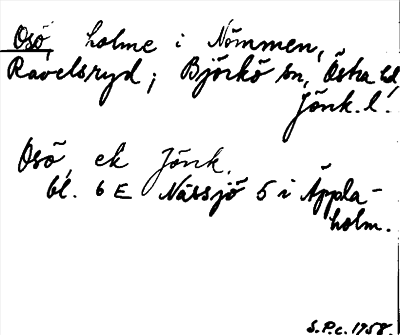 Osö, holme i Nömmen,
Ravelsryd; Björkö sn, Östra hd,
Jönk. l.
Osö, ek Jönk.
bl. 6 E Nässjö 5 i Äppla-
holm.
S.P.c. 1958.